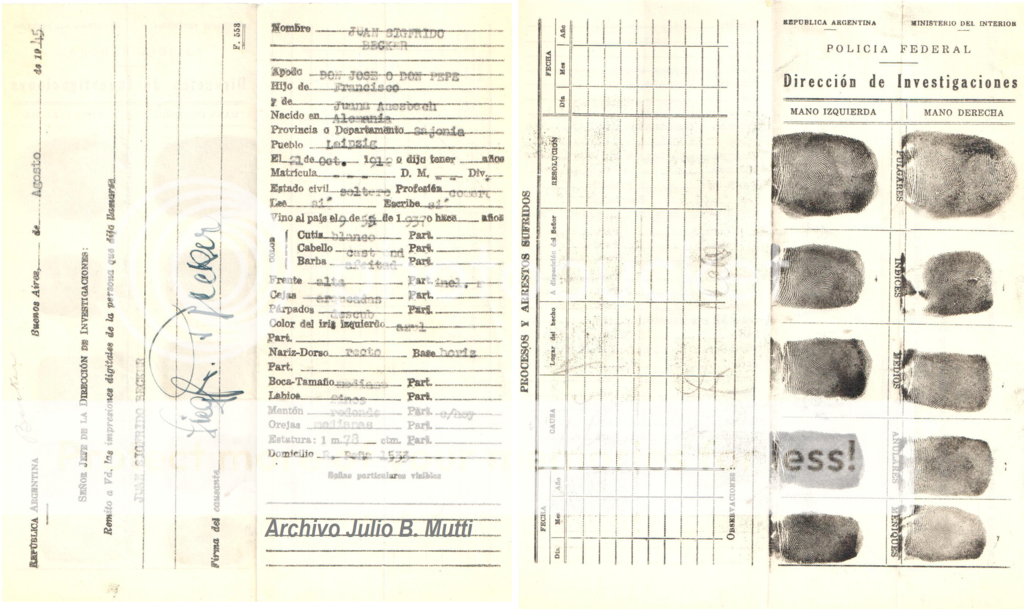 REPÚBLICA ARGENTINA
Buenos Aires, de Agosto de 1945
SEÑOR JEFE DE LA DIRECCIÓN DE INVESTIGACIONES:
Remito a Vd. las impresiones digitales de la persona que dijo llamarse
JUAN SIGFRIDO BECKER
Firma del causante
F. 553
Nombre JUAN SIGFRIDO
BECKER
Apodo DON JOSE O DON PEPE
Hijo de Francisco
y de Juana
Nacido en Alemania
Provincia o Departamento Sajonia
Pueblo Leipzig
El 21 de Oct. 1912 o dijo tener años
Matrícula D. M. Div.
Estado civil soltero Profesión
Lee si Escribe si
Vino al país el 9 de de 1.937 o hace años
COLOR
Cutis blanco Part.
Cabello Part.
Barba afeitad Part.
Frente alta Part. incl.
Cejas arqueadas Part.
Párpados descub Part.
Color del iris izquierdo azul
Part.
Nariz-Dorso recto Base horiz
Part.
Boca-Tamaño mediana Part.
Labios Part.
Mentón redondo Part. c/hoy
Orejas medianas Part.
Estatura: 1 m. 78 ctm. Part.
Domicilio Peña 1533
Señas particulares visibles
Archivo Julio B. Mutti
PROCESOS Y ARRESTOS SUFRIDOS
FECHA
Día Mes Año
CAUSA
Lugar del hecho
A disposición del Señor
RESOLUCIÓN
FECHA
Día Mes Año
OBSERVACIONES:
REPUBLICA ARGENTINA MINISTERIO DEL INTERIOR
POLICIA FEDERAL
Dirección de Investigaciones
MANO IZQUIERDA MANO DERECHA
PULGARES
INDICES
MEDIOS
ANULARES
MEÑIQUES
ess!